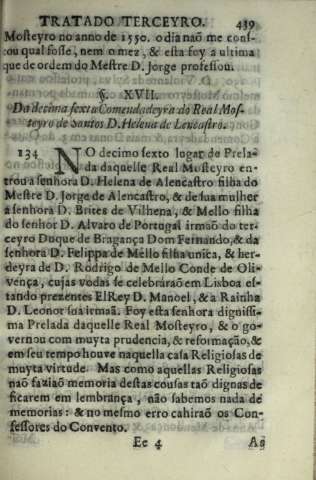 TRATADO TERCEYRO. 439
Mosteyro no anno de 1550. o dia naõ me cons-
tou qual fosse, nem o mez, & esta foy a ultima
que de ordem do Mestre D. Jorge professou.
§. XVII.
Da decima sexta Comendadeyra do Real Mos-
teyro de Santos D. Helena de Lencastro.
134 NO decimo sexto lugar de Prela-
da daquelle Real Mosteyro en-
trou a senhora D. Helena de Alencastro filha do
Mestre D. Jorge de Alencastro, & de sua mulher
a senhora D. Brites de Vilhena, & Mello filha
do senhor D. Alvaro de Portugal irmaõ do ter-
ceyro Duque de Bragança Dom Fernando, & da
senhora D. Felippa de Mello filha unica, & her-
deyra de D. Rodrigo de Mello Conde de Oli-
vença, cujas vodas se celebráraõ em Lisboa es-
tando prezentes ElRey D. Manoel, & a Rainha
D. Leonor sua irmaã. Foy esta senhora dignissi-
ma Prelada daquelle Real Mosteyro, & o go-
vernou com muyta prudencia, & reformaçaõ, &
em seu tempo houve naquella casa Religiosas de
muyta virtude. Mas como aquellas Religiosas
naõ faziaõ memoria destas cousas taõ dignas de
ficarem em lembrança, naõ sabemos nada de
memorias: & no mesmo erro cahiraõ os Con-
fessores do Convento.
Ee 4 As